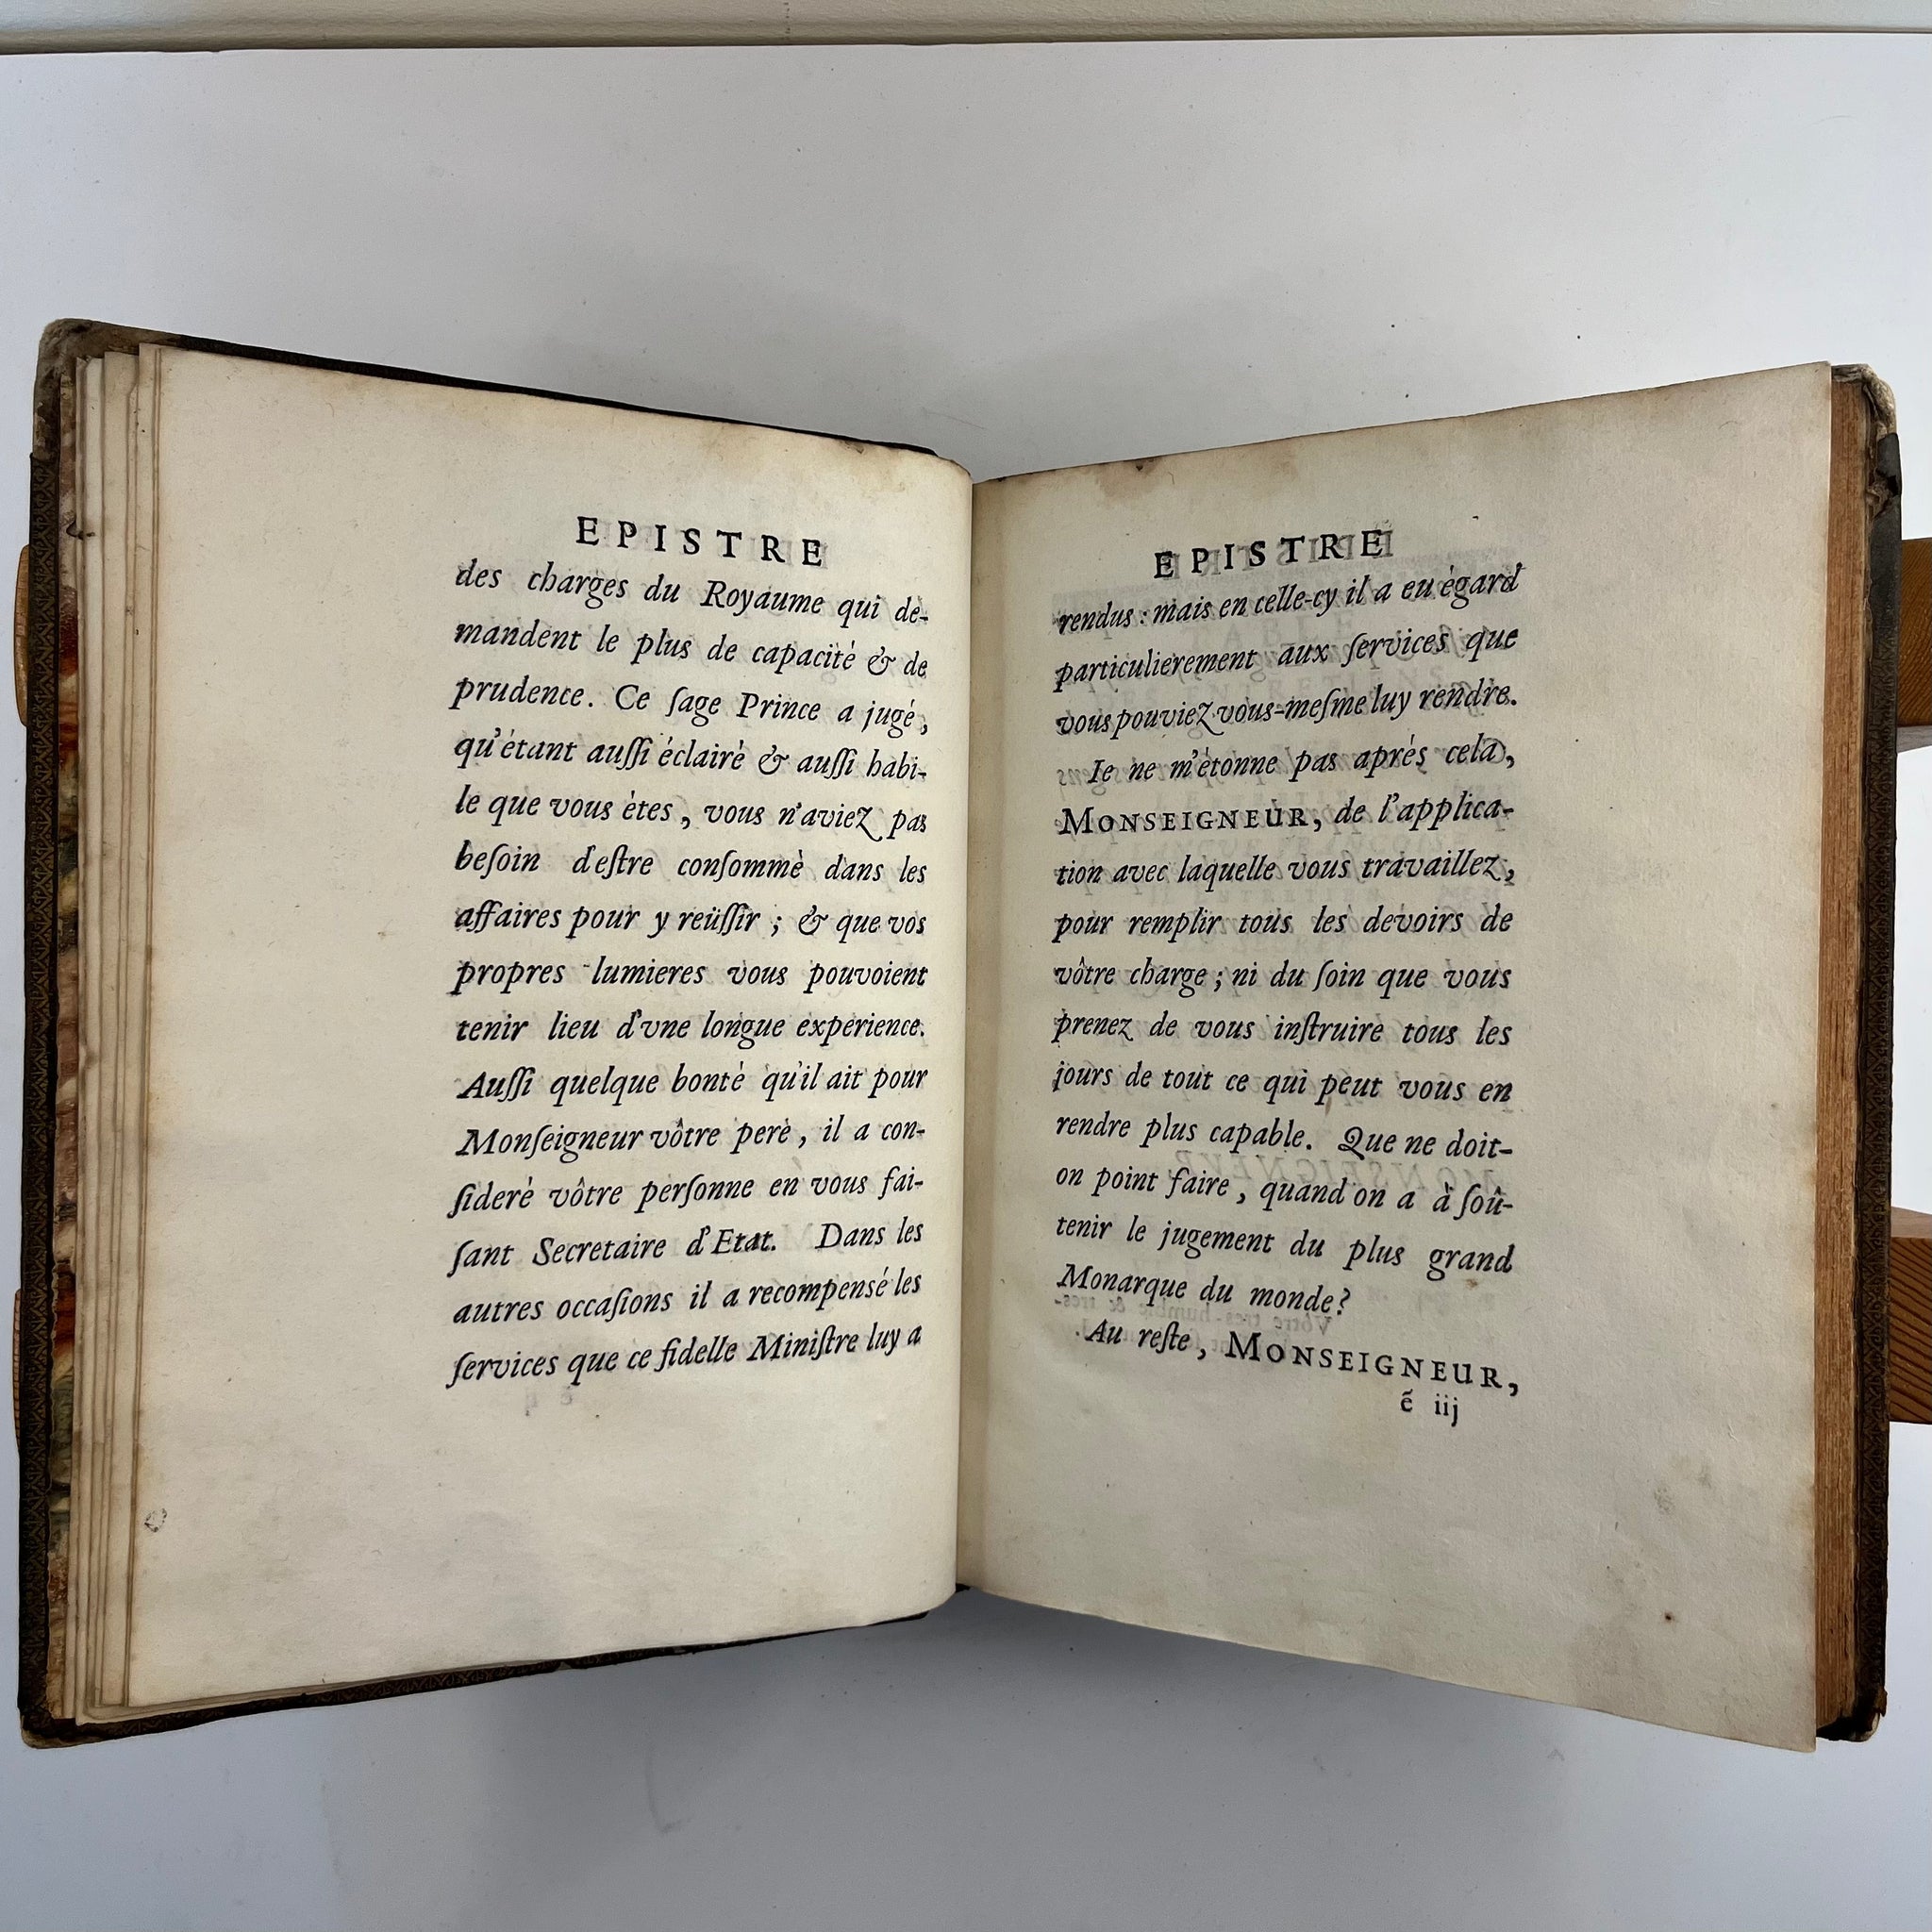 EPISTRE
des charges du Royaume qui de-
mandent le plus de capacité & de
prudence. Ce ſage Prince a jugé,
qu'étant auſſi éclairé & auſſi habi-
le que vous étes, vous n'aviez pas
beſoin d'eſtre conſommé dans les
affaires pour y reüſſir ; & que vos
propres lumieres vous pouvoient
tenir lieu d'vne longue experience.
Auſſi quelque bonté qu'il ait pour
Monſeigneur vôtre pere, il a con-
ſideré vôtre perſonne en vous fai-
ſant Secretaire d'Etat. Dans les
autres occaſions il a recompensé les
ſervices que ce fidelle Miniſtre luy a
EPISTRE
rendus : mais en celle-cy il a eu égard
particulierement aux ſervices que
vous pouviez vous-meſme luy rendre.
Ie ne m'étonne pas aprés cela,
MONSEIGNEUR, de l'applica-
tion avec laquelle vous travaillez,
pour remplir tous les devoirs de
vôtre charge ; ni du ſoin que vous
prenez de vous inſtruire tous les
jours de tout ce qui peut vous en
rendre plus capable. Que ne doit-
on point faire, quand on a à ſoû-
tenir le jugement du plus grand
Monarque du monde?
Au reſte, MONSEIGNEUR,
ẽ iij